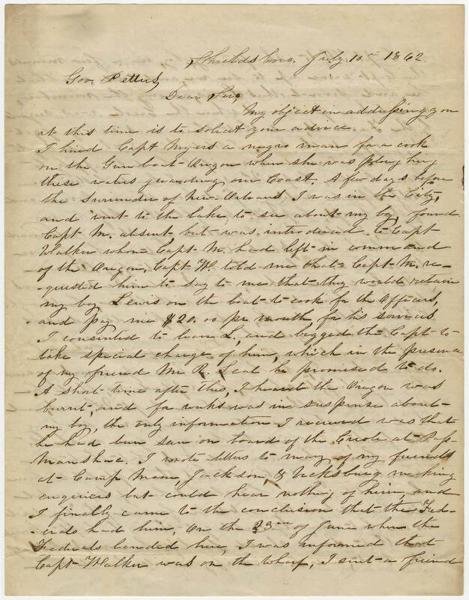 Shieldsboro, July 10th 1862
Gov. Pettus,
Dear Sir,
My object in addressing you
at this time is to solicit your advice.
I hired Capt Myers a negro man for a cook
on the Gun boat Oregon when she was plying
these waters guarding our Coast. A few days before
the surrender of New Orleans I was in the City,
and went to the lake to see about my boy, found
Capt M. absent but was introduced to Capt
Walker whom Capt M. had left in command
of the Oregon, Capt W. told me that Capt M. re-
quested him to say to me that they would retain
my boy Lewis on the boat to cook for the Officers,
and pay me $20.00 per month for his services
I consented to leave L. and begged the Capt to
take special charge of him, which in the presence
of my friend Mr R. Seal he promised to do.
A short time after this, I heard the Oregon was
burnt, and for weeks was in suspense about
my boy, the only information I received was that
he had been seen on board of the Creole at Pass
Manshac. I wrote letters to many of my friends
at Camp Moore, Jackson & Vicksburg making
enquiries but could hear nothing of him, and
I finally came to the conclusion that the Fed-
erals had him, On the 23rd of June when the
Federals landed here, I was informed that
Capt Walker was on the wharf, I sent a friend